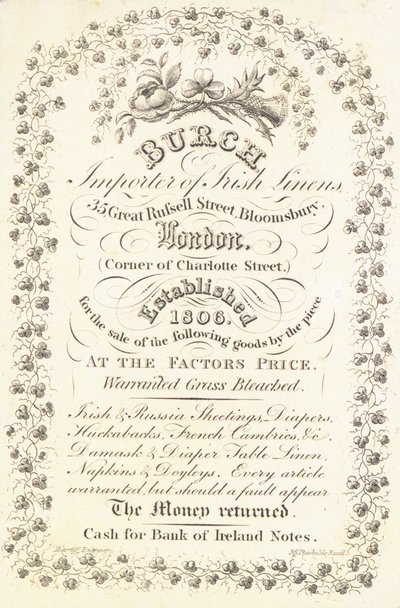 BURCH,
Importer of Irish Linens,
35 Great Rufsell Street, Bloomsbury,
London.
(Corner of Charlotte Street.)
Established
1806.
for the sale of the following goods by the piece
AT THE FACTORS PRICE.
Warranted Grass Bleached.
Irish & Russia Sheetings, Diapers,
Huckabacks, French Cambrics, &c.
Damask & Diaper Table Linen,
Napkins & Doyleys. Every article
warranted, but should a fault appear
The Money returned.
Cash for Bank of Ireland Notes.
Engraver
Theobalds Road